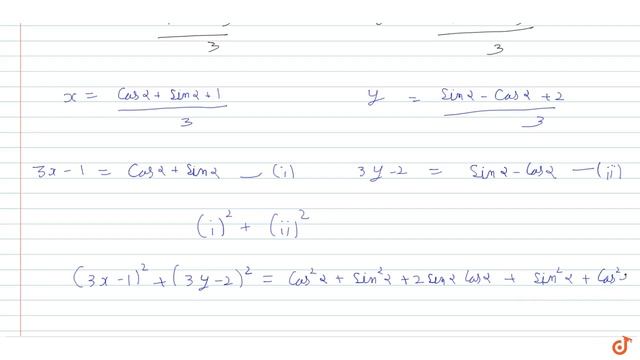 3 3
x = Cos α + Sin α + 1 / 3 y = Sin α - Cos α + 2 / 3
3x - 1 = Cos α + Sin α — (i) 3y - 2 = Sin α - Cos α — (ii)
(i)² + (ii)²
(3x - 1)² + (3y - 2)² = Cos² α + Sin² α + 2 Sin α Cos α + Sin² α + Cos²
doubtnut